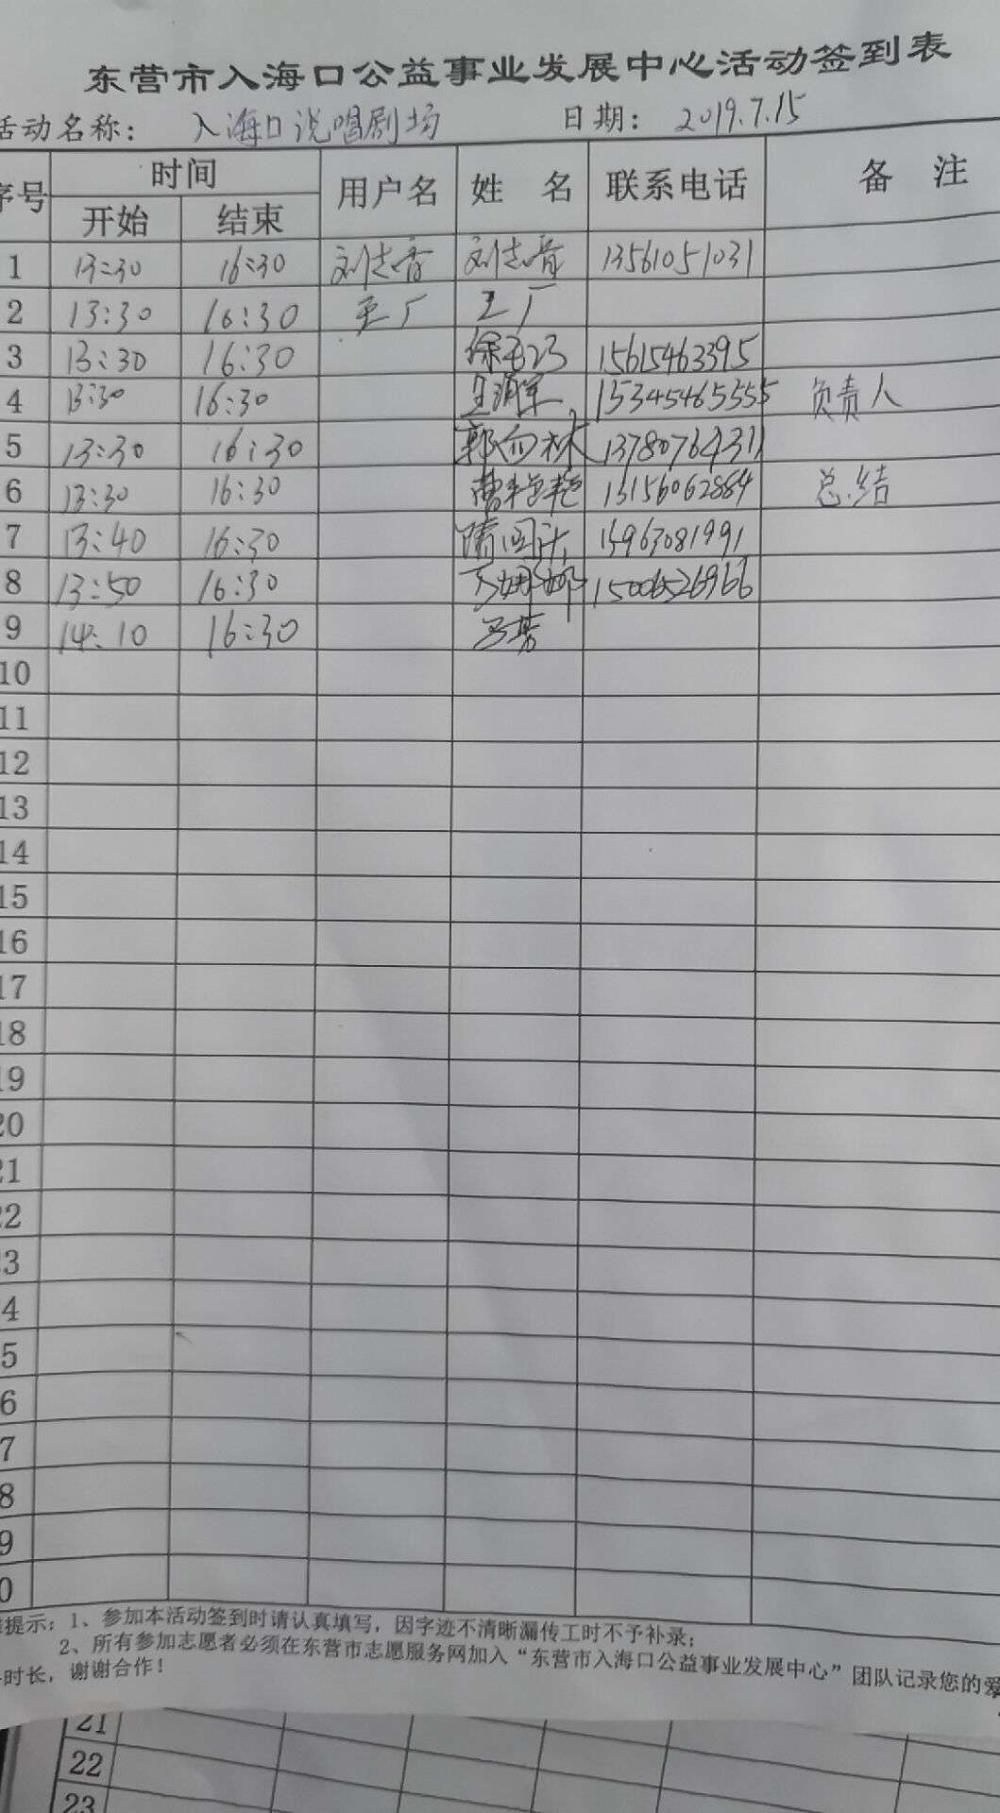 东营市入海口公益事业发展中心活动签到表
活动名称： 入海口说唱剧场 日期： 2019.7.15
序号 时间 用户名 姓 名 联系电话 备 注
开始 结束
1 13:30 16:30 刘志香 刘志香 13561051031
2 13:30 16:30 王厂 王厂
3 13:30 16:30 15615463395
4 13:30 16:30 15345465555 负责人
5 13:30 16:30 郭向林 13780764311
6 13:30 16:30 曹艳艳 13156062864 总结
7 13:40 16:30 隋 15963081991
8 13:50 16:30 15006526966
9 14:10 16:30
10
11
12
13
14
15
16
17
18
19
20
21
22
3
4
5
6
7
8
9
0
提示：1、参加本活动签到时请认真填写，因字迹不清晰漏传工时不予补录；
2、所有参加志愿者必须在东营市志愿服务网加入“东营市入海口公益事业发展中心”团队记录您的爱
时长，谢谢合作！
21
22
23